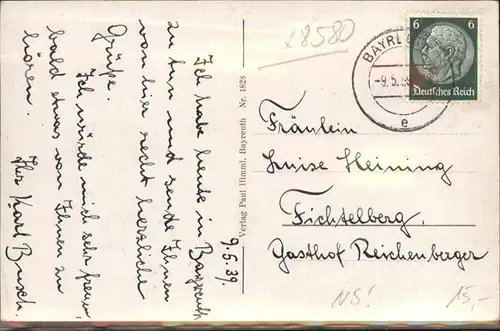 9.5.39.
Ich habe heute in Bayreuth
zu tun und sende Ihnen
von hier recht herzliche
Grüße.
Ich würde mich sehr freuen,
bald etwas von Ihnen zu
hören.
Ihr Karl Busch.
Verlag Paul Himml, Bayreuth Nr. 1828
x8580
BAYRE
-9.5.39
e
6 6
Deutsches Reich
Fräulein
Luise Heining
Fichtelberg,
Gasthof Reichenberger
NS!
15,-